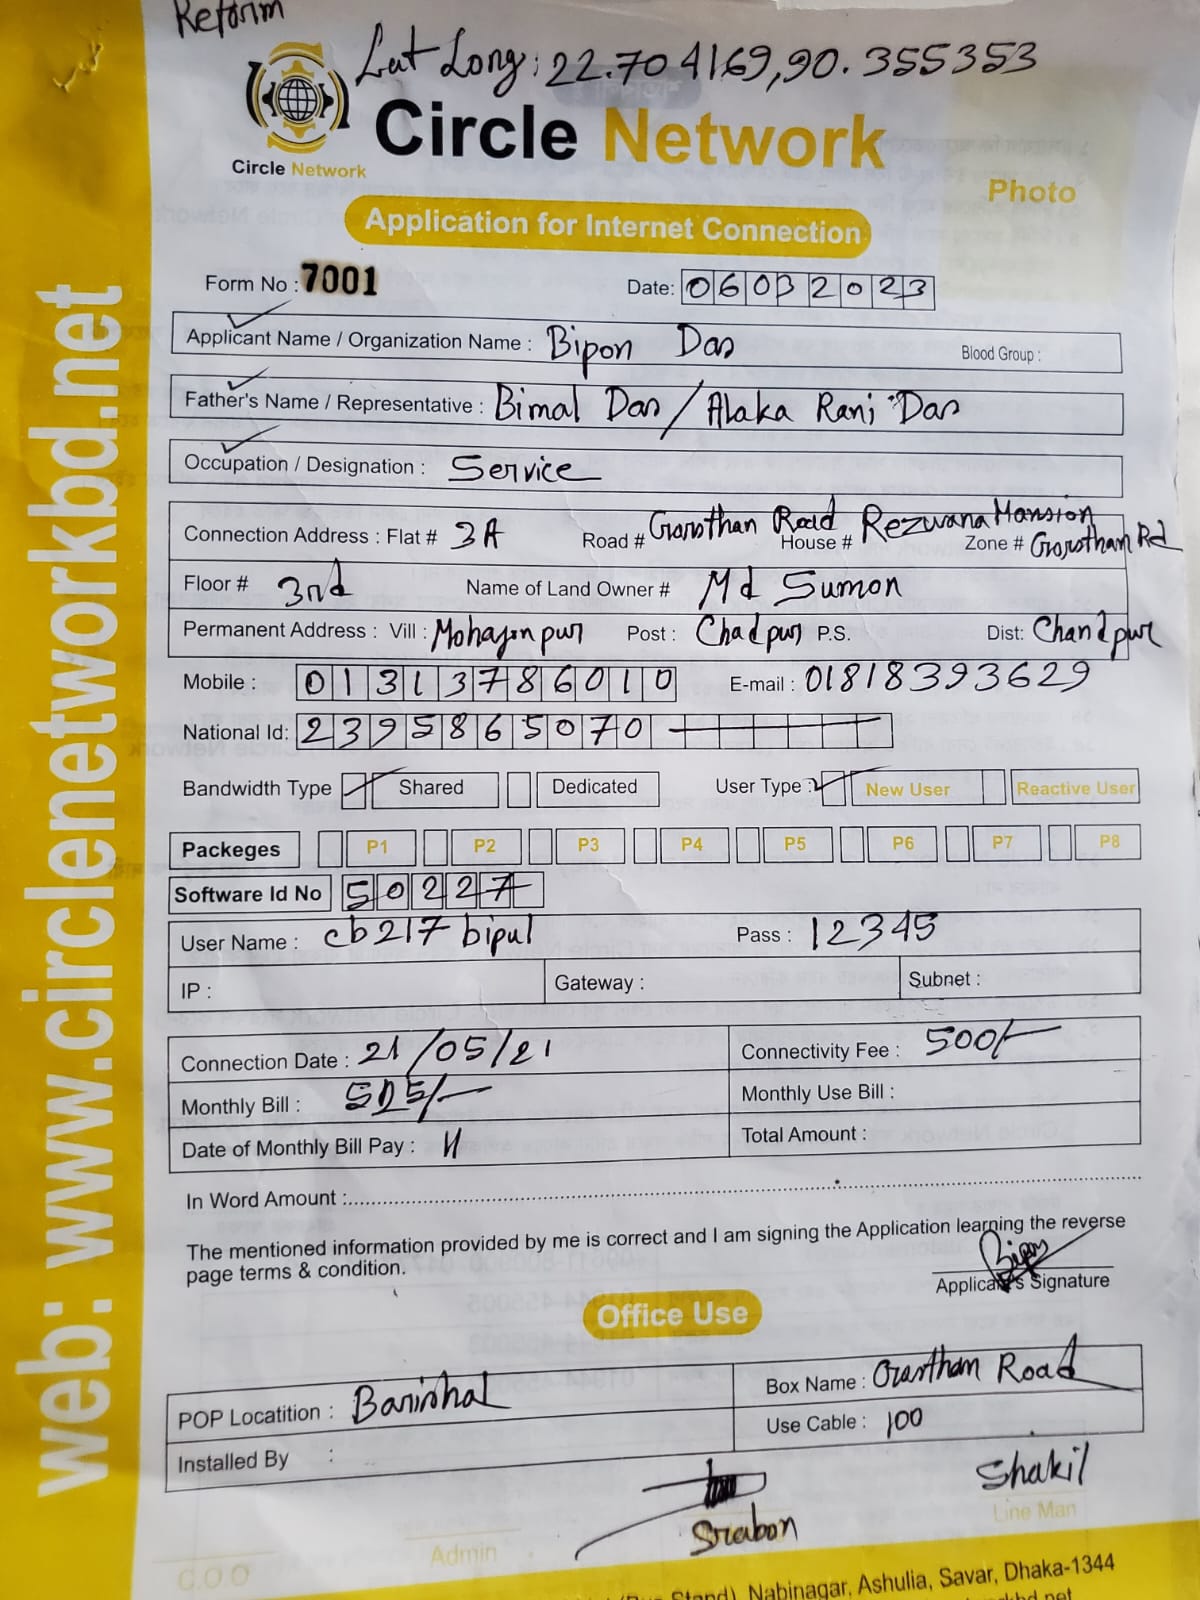 Reform
Lat Long: 22.704169,90.355353
Circle Network
Circle Network
Photo
Application for Internet Connection
Form No : 7001
Date: 06032023
Applicant Name / Organization Name : Bipon Das
Blood Group :
Father's Name / Representative : Bimal Das / Alaka Rani Das
Occupation / Designation : Service
Connection Address : Flat # 3A Road # Gorosthan Road House # Rezwana Mansion Zone # Gorosthan Rd
Floor # 3rd Name of Land Owner # Md Sumon
Permanent Address : Vill : Mohajonpur Post : Chadpur P.S. Dist: Chandpur
Mobile : 01313786010 E-mail : 01818393629
National Id: 2395865070
Bandwidth Type Shared Dedicated User Type : New User Reactive User
Packeges P1 P2 P3 P4 P5 P6 P7 P8
Software Id No 50227
User Name : cb217 bipul Pass : 12345
IP : Gateway : Subnet :
Connection Date : 21/05/21 Connectivity Fee : 500/-
Monthly Bill : 525/- Monthly Use Bill :
Date of Monthly Bill Pay : Total Amount :
In Word Amount :
The mentioned information provided by me is correct and I am signing the Application learning the reverse
page terms & condition.
Bipon
Applicant's Signature
Office Use
POP Locatition : Barishal Box Name : Road
Installed By : Use Cable : 100
Srabon
Shakil
Line Man
Admin
C.O.O
Stand), Nabinagar, Ashulia, Savar, Dhaka-1344
web: www.circlenetworkbd.net